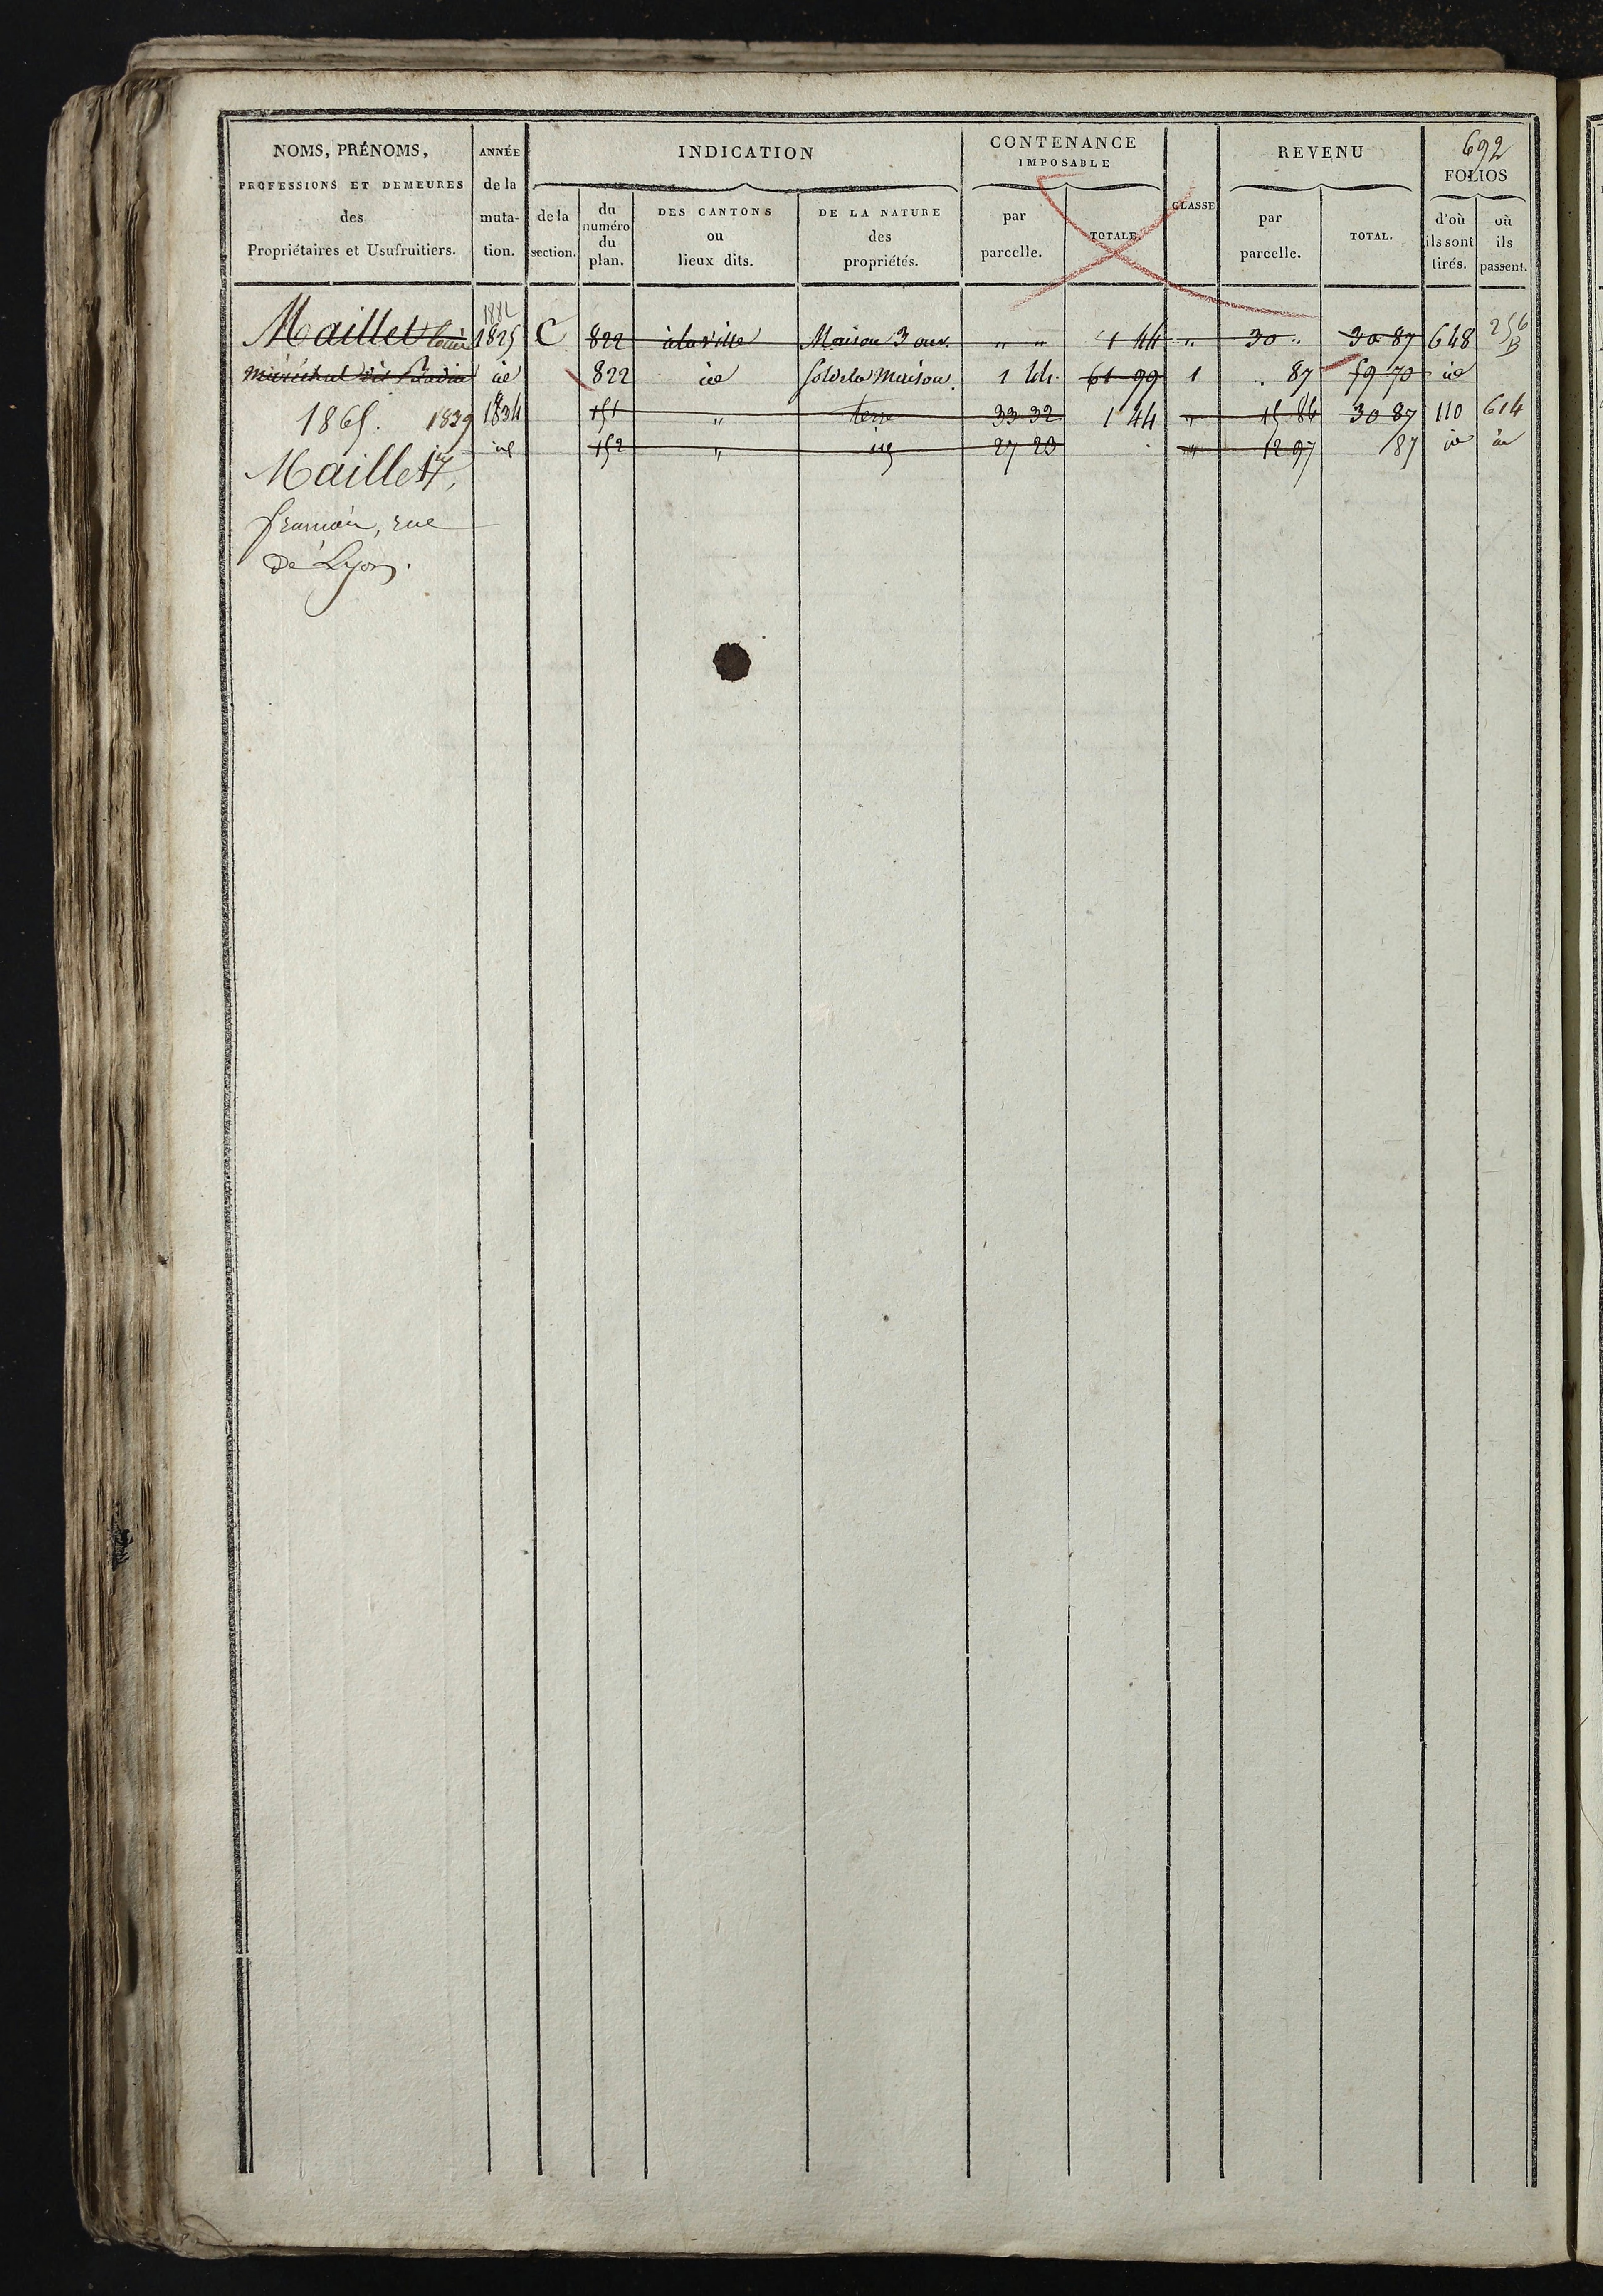 692
NOMS, PRÉNOMS,
PROFESSIONS ET DEMEURES
des
Propriétaires et Usufruitiers.
ANNÉE
de la
muta-
tion.
INDICATION
de la
section.
du
numéro
du
plan.
DES CANTONS
ou
lieux dits.
DE LA NATURE
des
propriétés.
CONTENANCE
IMPOSABLE
par
parcelle.
TOTALE.
CLASSE
REVENU
par
parcelle.
TOTAL.
FOLIOS
d'où
ils sont
tirés.
où
ils
passent.
1882
Maillet Louis 1825 C 822 à la ville Maison 3 ouv. " " 1 44 " 30 " 30 87 648 256 B
maréchal dit id 822 id Sol de la Maison. 1 44 61 99 1 " 87 59 70 id
1865. 1839 1834 151 " terre 33 32 1 44 " 15 86 30 87 110 614
Maillet id 152 " id 27 23 " 12 97 87 id id
rue
de Lyon.